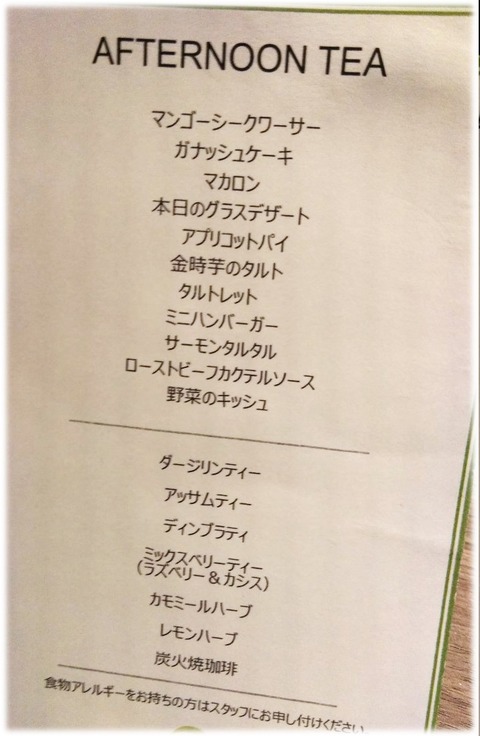 AFTERNOON TEA
マンゴーシークワーサー
ガナッシュケーキ
マカロン
本日のグラスデザート
アプリコットパイ
金時芋のタルト
タルトレット
ミニハンバーガー
サーモンタルタル
ローストビーフカクテルソース
野菜のキッシュ
ダージリンティー
アッサムティー
ディンブラティ
ミックスベリーティー
(ラズベリー＆カシス)
カモミールハーブ
レモンハーブ
炭火焼珈琲
食物アレルギーをお持ちの方はスタッフにお申し付けください